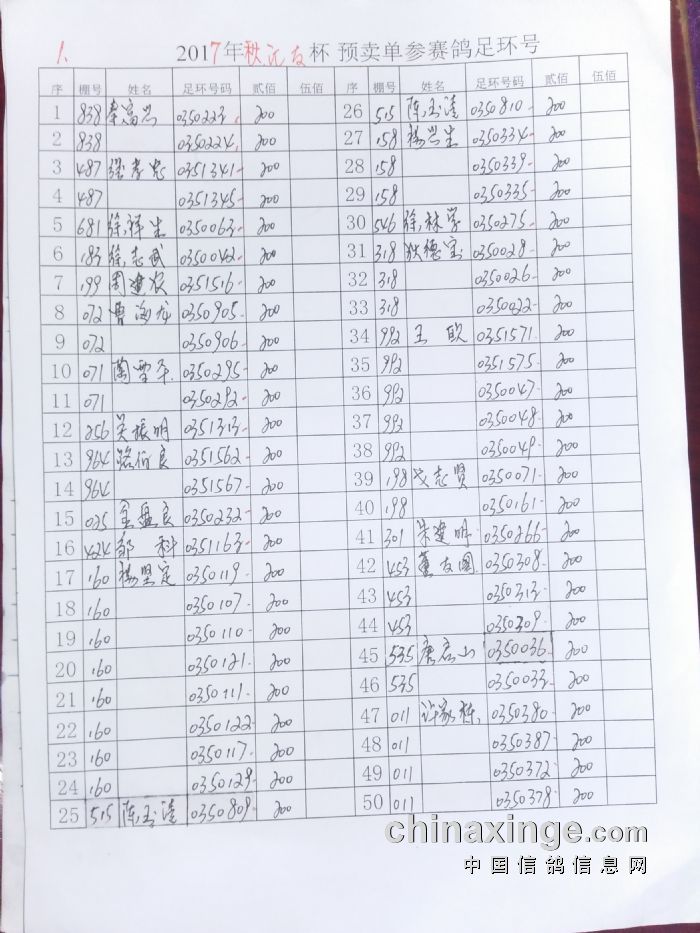 1.
2017年秋沅友杯 预卖单参赛鸽足环号
序 棚号 姓名 足环号码 贰佰 伍佰 序 棚号 姓名 足环号码 贰佰 伍佰
1 838 秦富兴 0350223 200 26 515 陈玉清 0350810 200
2 838 0350224 200 27 158 杨兴生 0350334 200
3 487 徐孝忠 0351341 200 28 158 0350339 200
4 487 0351345 200 29 158 0350335 200
5 681 徐祥生 0350063 200 30 546 徐林学 0350275 200
6 183 徐志武 0350042 200 31 318 狄德宝 0350028 200
7 199 周建农 0351516 200 32 318 0350026 200
8 072 曹海龙 0350905 200 33 318 0350022 200
9 072 0350906 200 34 992 王欧 0351571 200
10 071 0350295 200 35 992 0351575 200
11 071 0350292 200 36 992 0350047 200
12 256 吴振明 0351313 200 37 992 0350048 200
13 964 骆伯良 0351562 200 38 992 0350049 200
14 964 0351567 200 39 198 戈志贤 0350071 200
15 025 金盘良 0350232 200 40 198 0350161 200
16 424 邹科 0351163 200 41 301 朱建明 0350266 200
17 160 杨坚定 0350119 200 42 453 董友国 0350308 200
18 160 0350107 200 43 453 0350313 200
19 160 0350110 200 44 453 0350309 200
20 160 0350121 200 45 535 唐启山 0350036 200
21 160 0350111 200 46 535 0350033 200
22 160 0350122 200 47 011 许家栋 0350380 200
23 160 0350117 200 48 011 0350387 200
24 160 0350129 200 49 011 0350372 200
25 515 陈玉清 0350809 200 50 011 0350378 200
chinaxinge.com
中国信鸽信息网